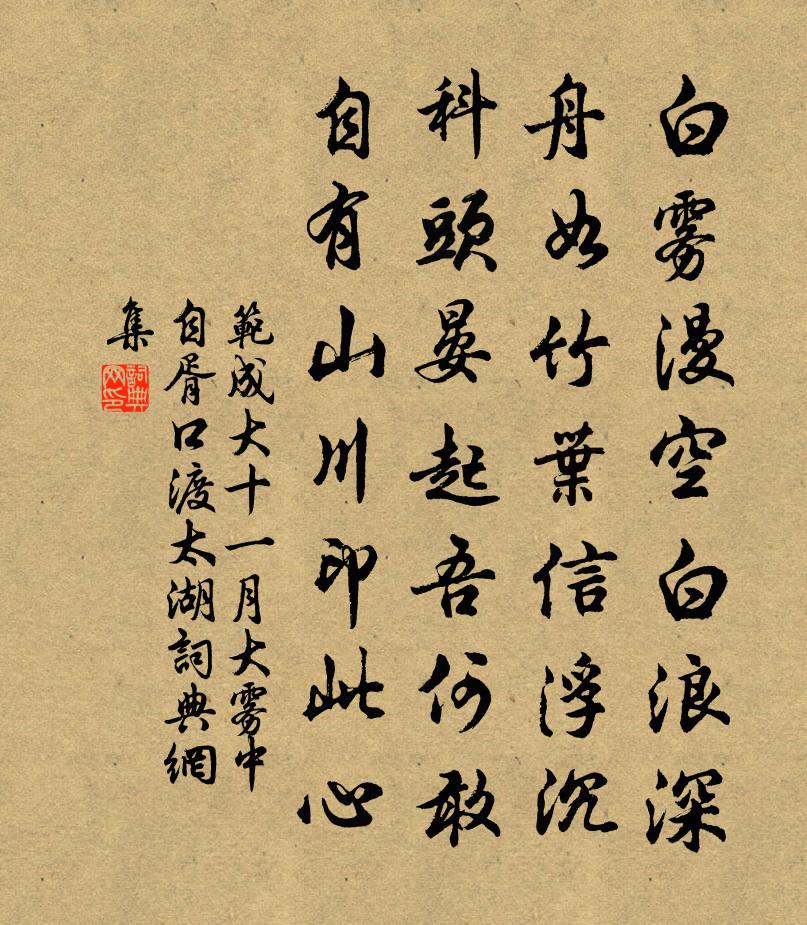 白雾漫空白浪深
舟如竹葉信浮沉
科頭晏起吾何敢
自有山川印此心
範成大十一月大雾中
自胥口渡太湖詞典網
集
詞典網印